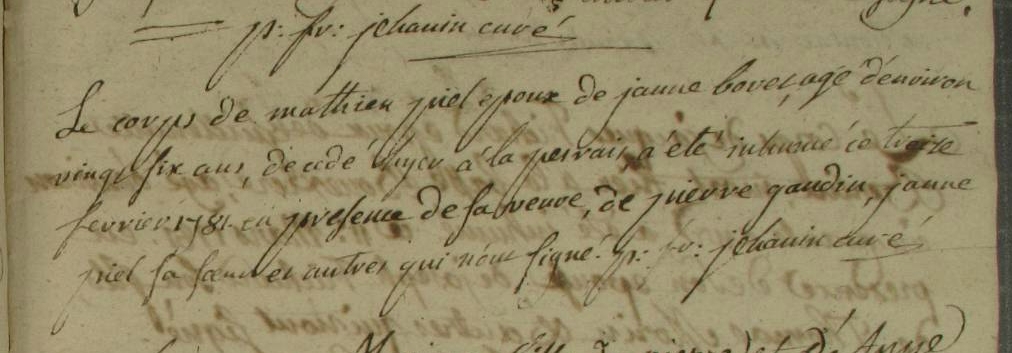 p: fr: jehanin curé
Le corps de mathieu piel epoux de janne bovel, agé d'environ
vingt six ans, decedé hyer à la pervais, a été inhumé ce treize
fevrier 1781. en presence de sa veuve, de pierre gaudin, janne
piel sa soeur et autres qui n'ont signé. p: fr: jehanin curé